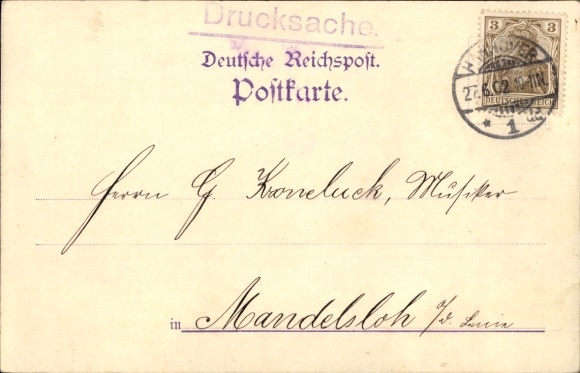 Drucksache.
Deutsche Reichspost.
Postkarte.
3 3
DEUTSCHES REICH
HANNOVER
27.6.02. 10-11N.
* 1
Herrn G. Kroneluck, Musiker
in Mandelsloh a/d. Leine